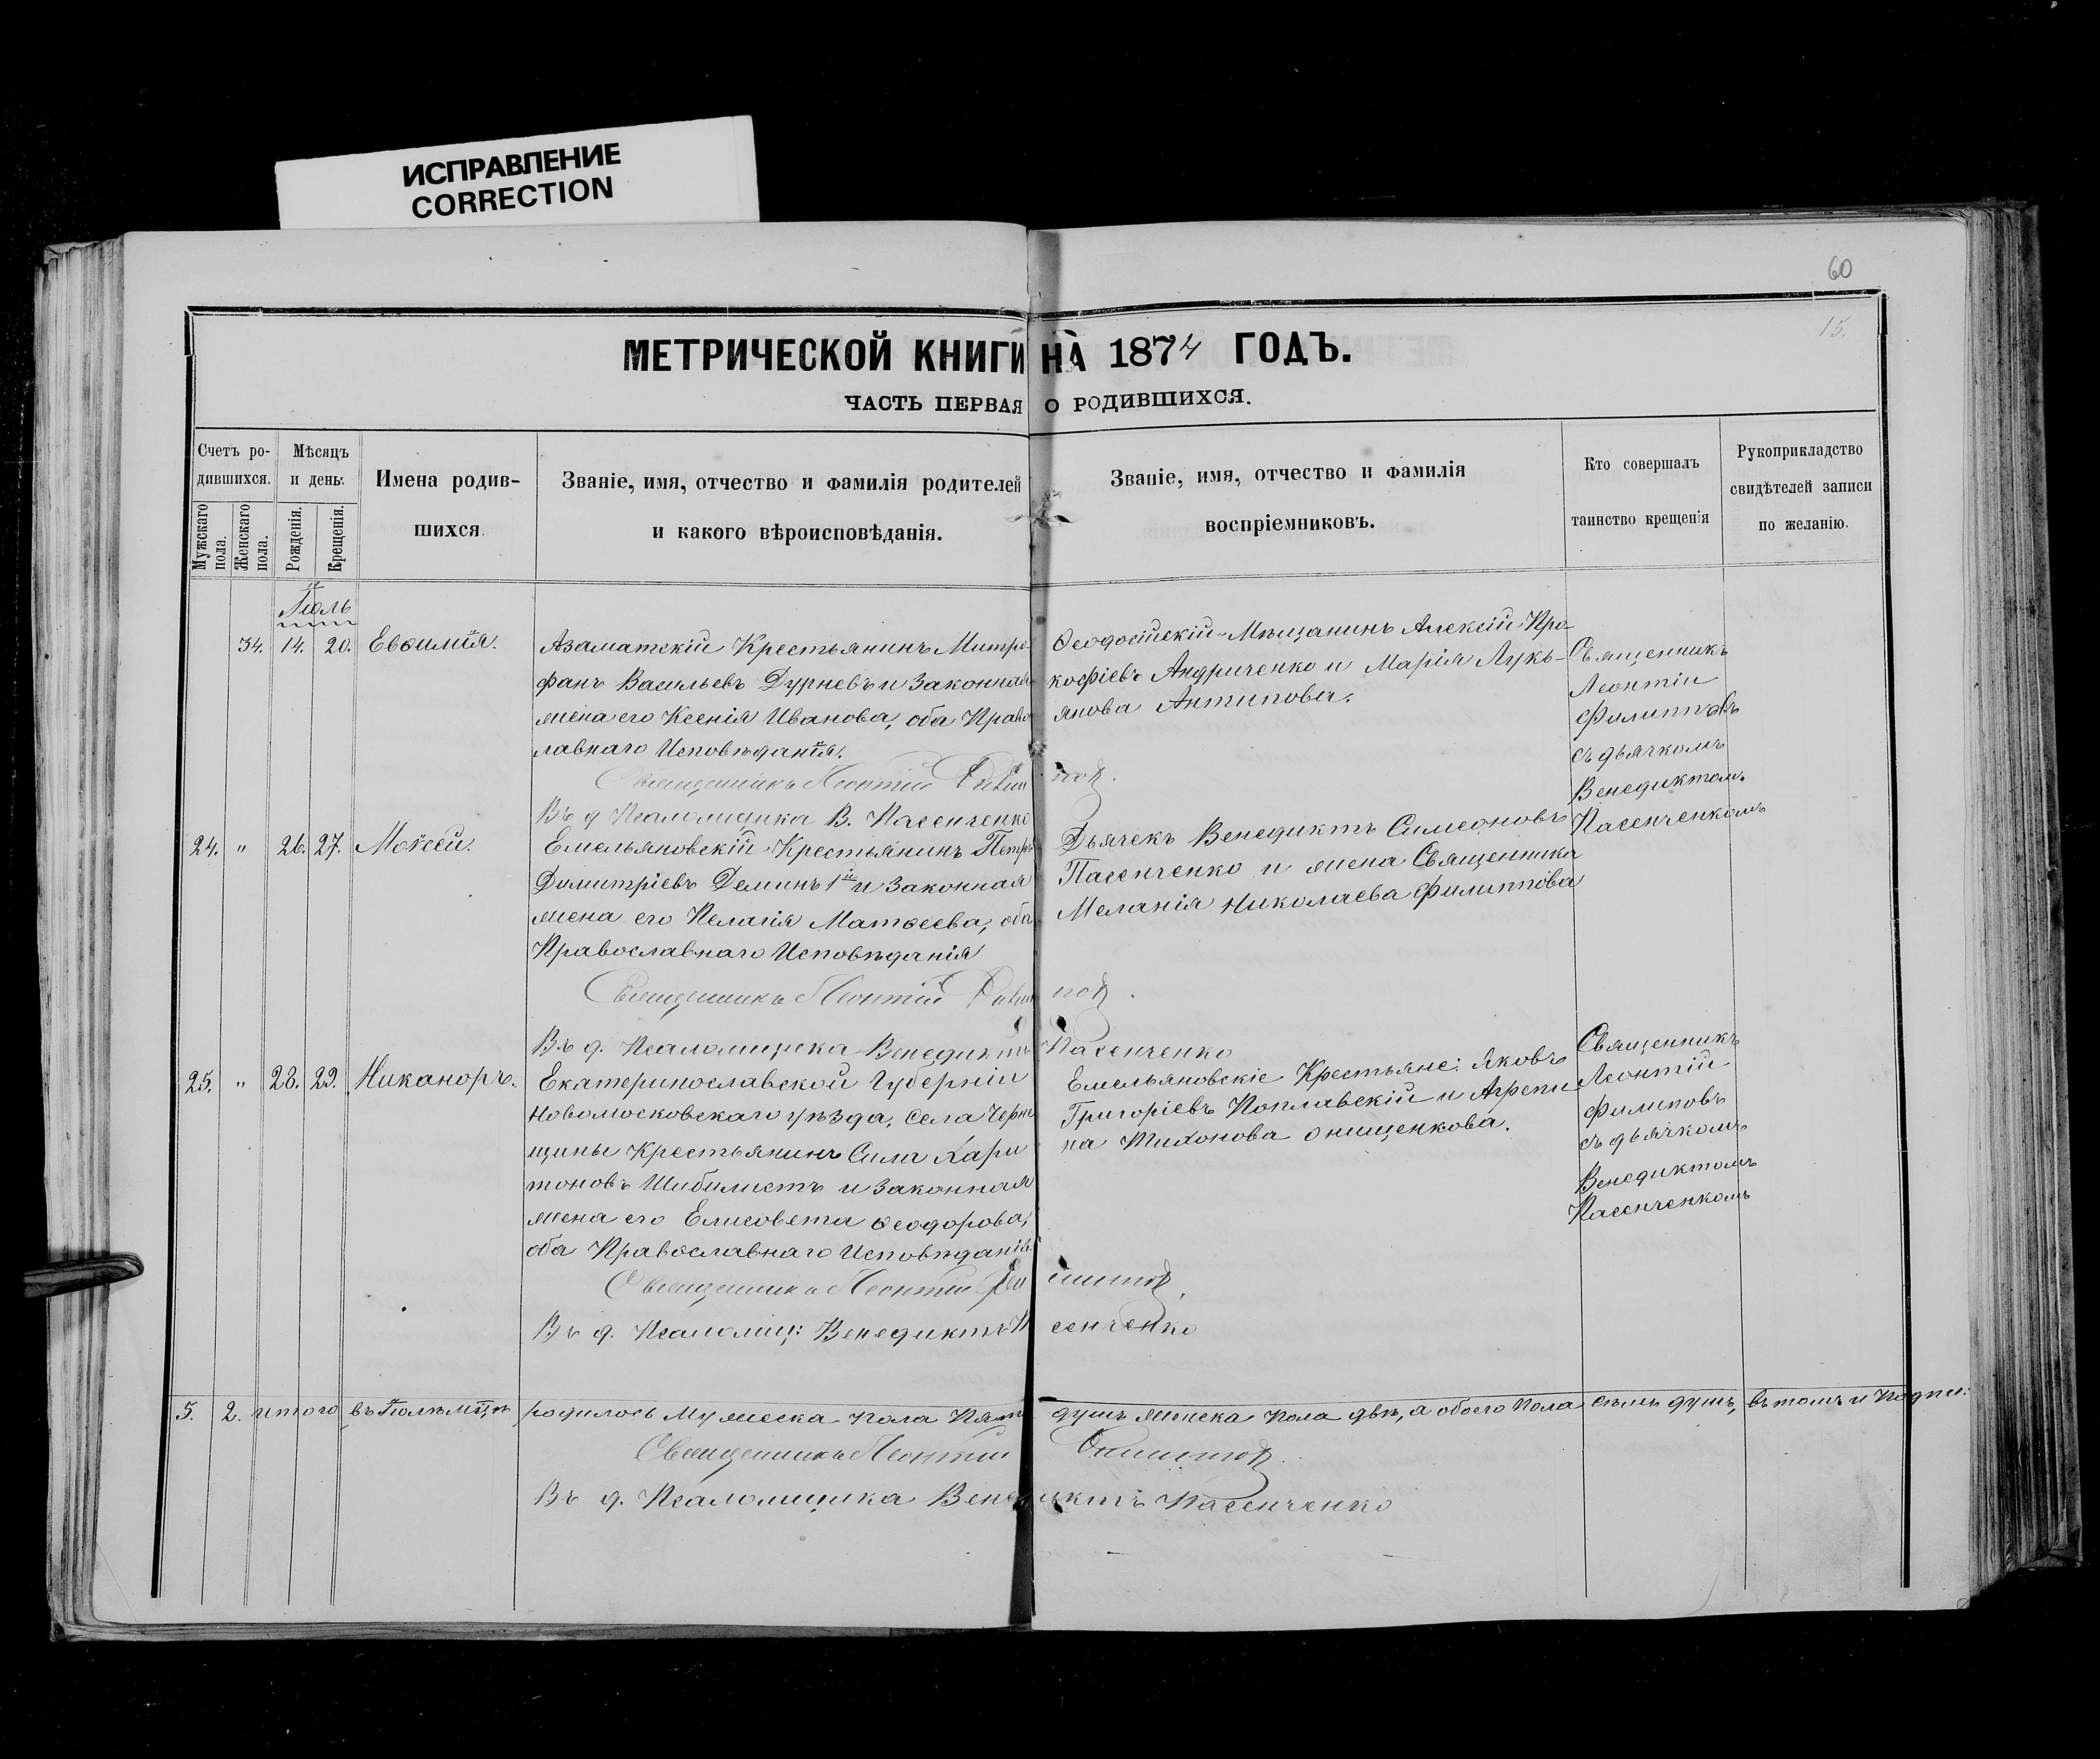 ИСПРАВЛЕНИЕ
CORRECTION
60
15.
МЕТРИЧЕСКОЙ КНИГИ НА 1874 ГОДЪ.
ЧАСТЬ ПЕРВАЯ О РОДИВШИХСЯ.
Счетъ ро-
дившихся.
Мужскаго пола.
Женскаго пола.
Мѣсяцъ
и день.
Рожденія.
Крещенія.
Имена родив-
шихся
Званіе, имя, отчество и фамилія родителей
и какого вѣроисповѣданія.
Званіе, имя, отчество и фамилія
воспріемниковъ.
Кто совершалъ
таинство крещенія
Рукоприкладство
свидѣтелей записи
по желанію.
Іюль
34. 14. 20. Евѳимія.
Азаматскій Крестьянинъ Митро-
фанъ Васильевъ Дурневъ и Законная
жена его Ксенія Иванова, оба Право
лавнаго Исповѣданія.
Ѳеодосійскій Мѣщанинъ Алексій Про-
кофіевъ Андриченко и Марія Лукь-
янова Антипова.
Священникъ
Леонтій
Филипповъ
съ дьячкомъ
Венедиктомъ
Пасенченкомъ
Священникъ Леонтій Филиппов
Въ д Псаломщика В. Пасенченко
24. " 26. 27. Моѵсей.
Емельяновскій Крестьянинъ Петръ
Димитріевъ Деминъ 1й и Законная
жена его Пелагія Матѳеева, оба
Православнаго Исповѣданія
Дьячекъ Венедиктъ Симеоновъ
Пасенченко и жена Священника
Меланія Николаева Филиппова
Священникъ Леонтій Филиппов.
Въ д. Псаломщика Венедиктъ Пасенченко
25. " 28. 29. Никаноръ.
Екатеринославской Губерніи
Новомосковскаго уѣзда, Села Черне
щины Крестьянинъ Сила Хари
тоновъ Шибилистъ и Законная
жена его Елисовета Ѳеодорова,
оба Православнаго Исповѣданія.
Емельяновскіе Крестьяне: Яковъ
Григоріевъ Поплавскій и Агрепи
на Тихонова Онищенкова.
Священникъ
Леонтій
Филиповъ
съ дьячкомъ
Венедиктомъ
Пасенченкомъ
Священникъ Леонтій Филиппов.
Въ д. Псаломщ: Венедиктъ Пасенченко
5. 2. итого въ Іюлѣ мцѣ родилось Мужеска пола Пять душъ Женска пола двѣ, а обоего пола семь душъ, въ томъ и Подпи:
Священникъ Леонтій Филиппов.
Въ д. Псаломщика Венедиктъ Пасенченко